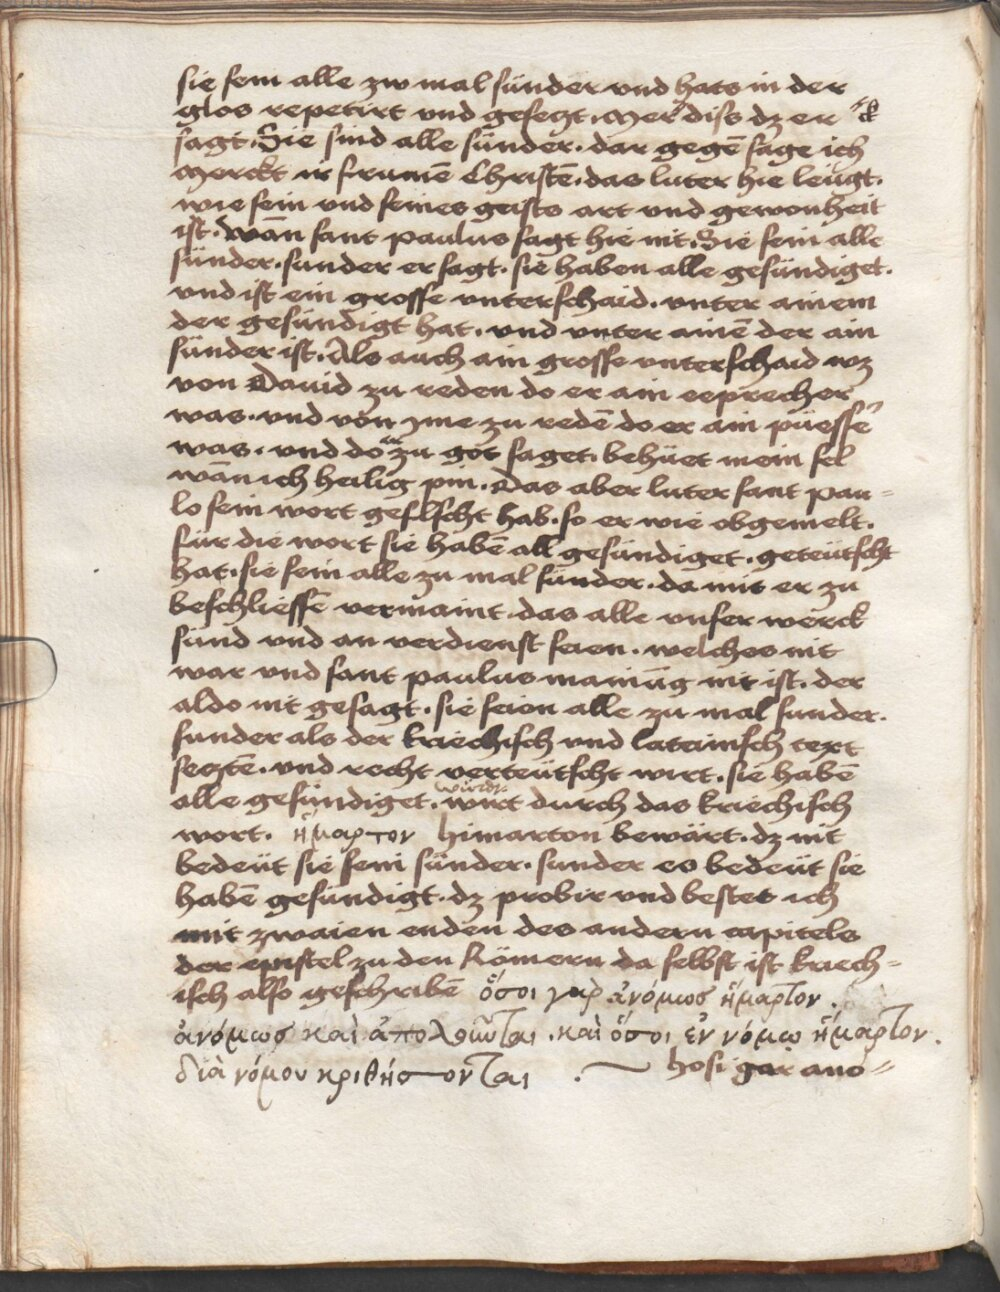 sie sein alle zw mal sünder vnd hats in der
glos repetirt vnd gesezt. Mer diss dz er
sagt. Sie sind alle sünder. dar gegē sage ich
Merckt ir frumē Christē. das luter hie leugt.
wie sein vnd seines geists art vnd gewonheit
ist. wān sant paulus sagt hie nit. Sie sein alle
sünder. sunder er sagt. sie haben alle gesündiget.
vnd ist ein grosse vnterschaid. vnter ainem
der gesündigt hat. vnd vnter ainē der ain
sünder ist. Als auch ain grosse vnterschaid wz
von Dauid zu reden do er ain eeprecher
was. vnd von yme zu redē do er ain püesser
was. vnd do er zu got saget. behüet mein sel
wān ich heilig pin. Das aber luter sant pau=
lo sein wort gefelscht hab. so er wie obgemelt.
für die wort sie habē all gesündiget. geteütscht
hat. sie sein alle zu mal sünder. da mit er zu
beschliessē vermaint. das alle vnser werck
sünd vnd an verdienst seien. welches nit
war vnd sant paulus mainūg nit ist. der
aldo nit gesagt. sie seien alle zu mal sunder.
sunder als der kriechisch vnd lateinisch text
seztē. vnd recht verteütscht wirt. sie habē
alle gesündiget. wurt durch das kriechisch
wort. ἥμαρτον himarton bewärt. dz nit
bedeüt sie sein sünder. sunder es bedeüt sie
habē gesündigt. dz probir vnd bestet ich
mit zwaien enden des andern capitels
der epistel zu den Römern da selbst ist kriech=
isch also geschribē ὅσοι γαρ ἀνόμωσ ἥμαρτον.
ἀνόμωσ καὶ ἀπολοῦνται. καὶ ὅσοι ἐν νόμω ἥμαρτον.
διὰ νόμου κριθήσονται . hosi gar ano=